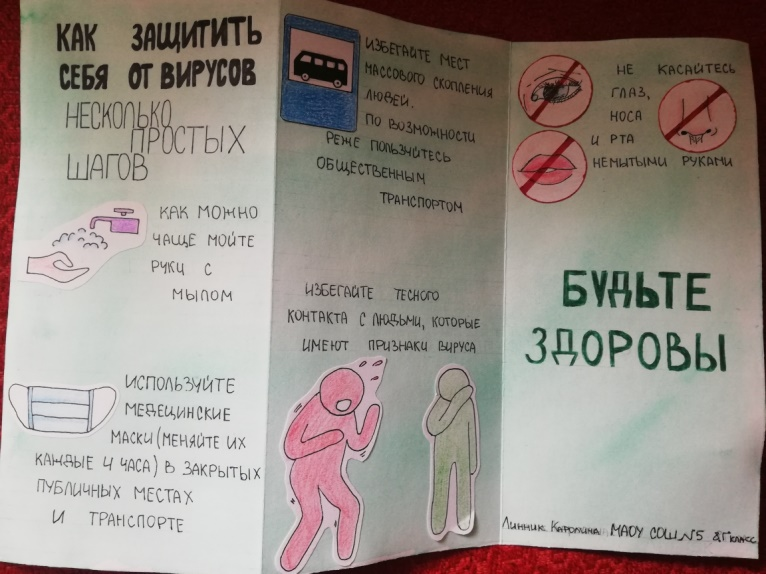 КАК ЗАЩИТИТЬ
СЕБЯ ОТ ВИРУСОВ
НЕСКОЛЬКО
ПРОСТЫХ
ШАГОВ
КАК МОЖНО
ЧАЩЕ МОЙТЕ
РУКИ С
МЫЛОМ
ИСПОЛЬЗУЙТЕ
МЕДЕЦИНСКИЕ
МАСКИ (МЕНЯЙТЕ ИХ
КАЖДЫЕ 4 ЧАСА) В ЗАКРЫТЫХ
ПУБЛИЧНЫХ МЕСТАХ
И ТРАНСПОРТЕ
ИЗБЕГАЙТЕ МЕСТ
МАССОВОГО СКОПЛЕНИЯ
ЛЮДЕЙ.
ПО ВОЗМОЖНОСТИ
РЕЖЕ ПОЛЬЗУЙТЕСЬ
ОБЩЕСТВЕННЫМ
ТРАНСПОРТОМ
ИЗБЕГАЙТЕ ТЕСНОГО
КОНТАКТА С ЛЮДЬМИ, КОТОРЫЕ
ИМЕЮТ ПРИЗНАКИ ВИРУСА
НЕ КАСАЙТЕСЬ
ГЛАЗ,
НОСА
И РТА
НЕМЫТЫМИ РУКАМИ
БУДЬТЕ
ЗДОРОВЫ
Линник Каролина МАОУ СОШ №5 8"Г" класс